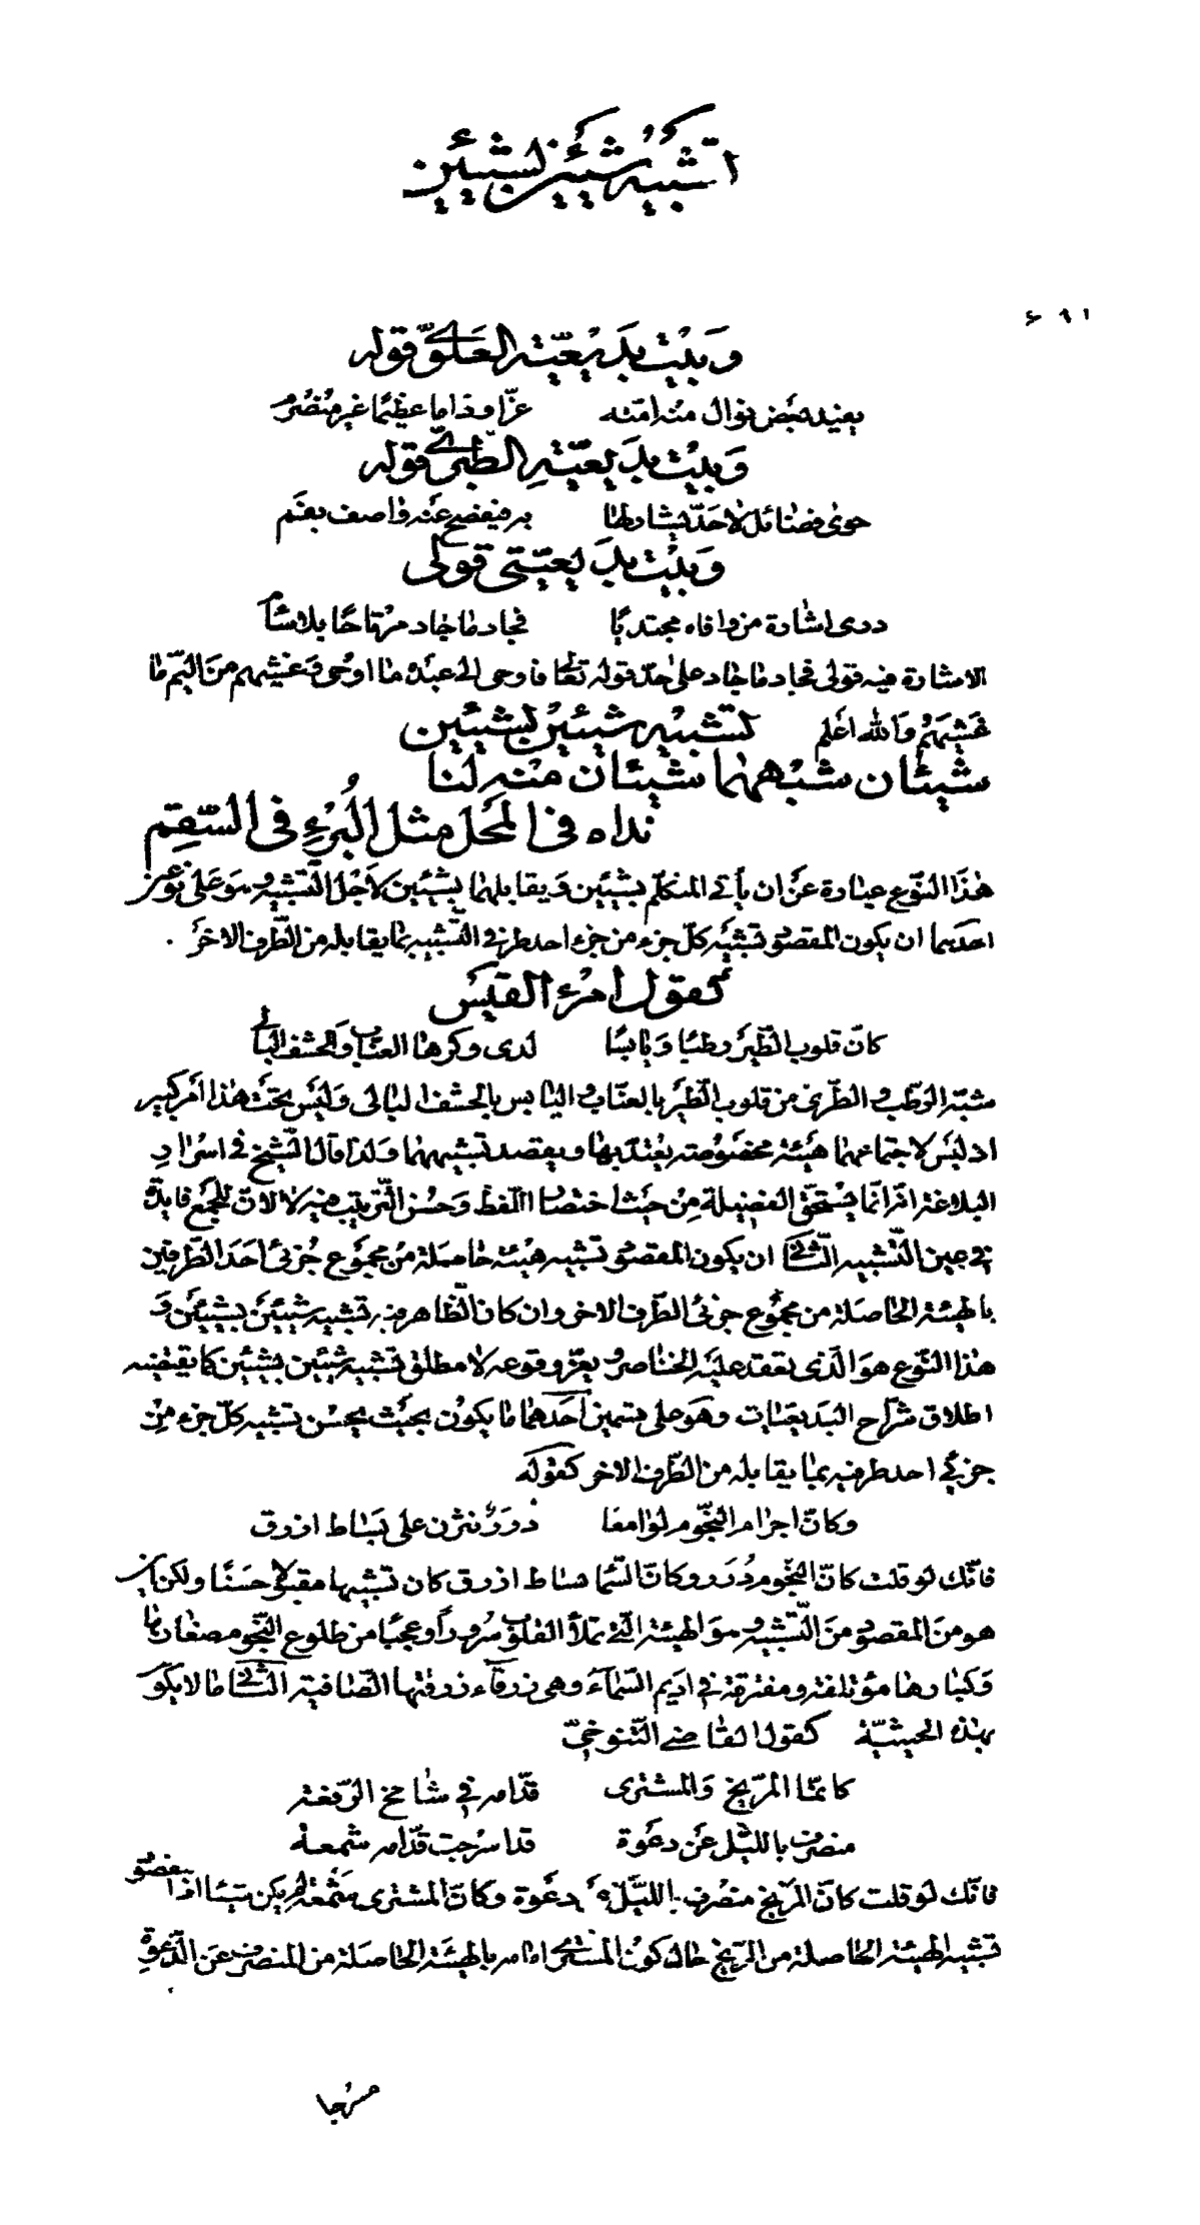 تشبيه شيئين بشيئين
٦٩١
وَبَيْت بَديعيّته العَلَويّ قوله
يعيد بعض نوال منه امّته عزّا و عظيمًا غير منصرم
وَبَيْت بَديعيّتهِ الطّبَري قوله
حوى فضائل لا احَدٌ يشابهها به فيفصح عَنه واصف بفَم
وَبَيْت بَديعيّتي قولي
اشارة من وافاه مجتديًا فجاد ما جاد بلا سأم
الاشارة فيه قولي فجاد ما جاد على حدّ قوله تعالى فاوحى الى عبده ما اوحى وَغشيهم منَ اليَمّ ما
غَشِيَهُم وَالله اعْلم تشبيه شيئين بشيئين
شيئان شبههما شيئان منه لنا
نداه في المَحل مثل البُرْءِ في السّقِم
هٰذا النّوع عبارة عَن ان يأتي المتكلّم بشيئين وَيقابلهما بشيئين لاَجْل التّشبيه وهوَ على نوعين
احدهما ان يكون المقصود تشبيه كلّ جزء من جزء احد طرفي التّشبيه بما يقابله من الطّرف الاخر .
كقول امرء القيس
كانّ قلوب الطّير رطبًا وَيابسًا لدى وكرها العنّاب وَالحشف البالي
شبّه الرّطب الطّري من قلوب الطّير بالعنّاب و اليابس بالحشف البالي وَليْس تحت هٰذا امر كبير
اذ ليْس لاجتماعهما هيئة مخصُوصة يعْتدّ بها ويقصد تشبيهها وَلذا قال الشّيخ في اسرار
البلاغة انّه انّما يستحقّ الفضيلة مِن حيْث اختصار اللّفظ وَحسْن التّرتيب فيه لا لانّ للجَمع فايدة
في عين التّشبيه الثّاني ان يكون المقصود تشبيه هيْئة حاصلة من مجموع جُزئي احَد الطّرفين
بالهيئة الحاصَلة من مجمُوع جزئي الطّرف الاخر وان كان الظّاهر فيه تشبيه شيئَين بشيئَين وَ
هٰذا النّوع هوَ الّذي تعقد عليْه الخناصر و يعزّ وقوعه لا مطلق تشبيه شيئين بشيئين كما يقتضيه
اطلاق شرّاح البَديعيّات وهَو على قسمين اَحَدهما ما يكوُن بحيْث يحسُن تشبيه كلّ جزء مِن
جزئي احد طرفيه بما يقابله من الطّرف الاخر كقوله
وكانّ اجرام النّجوم لوامعًا دُرَرٌ نثرن على بَسَاط ازرق
فانّك لو قلت كانّ النّجوم دُرَر وكانّ السّما بساط ازرق كان تشبيها مقبولا حَسَنًا ولكن اين
هو منَ المقصود منَ التّشبيه وهوَ الهيئة الّتي تملأ القلوب سُرورًا وعجبًا من طلوع النّجوم صغارها
وَكبارها مؤتلفة و مفترقة في اديم السّماءَ وهي زرقاء زرقتها الصّافية الثّاني ما لا يكون
بهٰذه الحيثيّة كقول القاضي التّنوخيّ
كانّما المرّيخ وَالمشترى قدّامه في شامخ الرّفعة
منصرف بالليْل عَن دعوَة قد اسرجت قدّامه شمعة
فانّك لو قلت كانّ المرّيخ منصرف بالليْل عن دعوَة وكانّ المشترى شمْعَة لم يكن شيئا اذ المقصود
تشبيه الهيئة الحاصلة من المرّيخ حال كوْن المشترى امامه بالهيئَة الحاصَلة من المنصرف عن الدّعوة